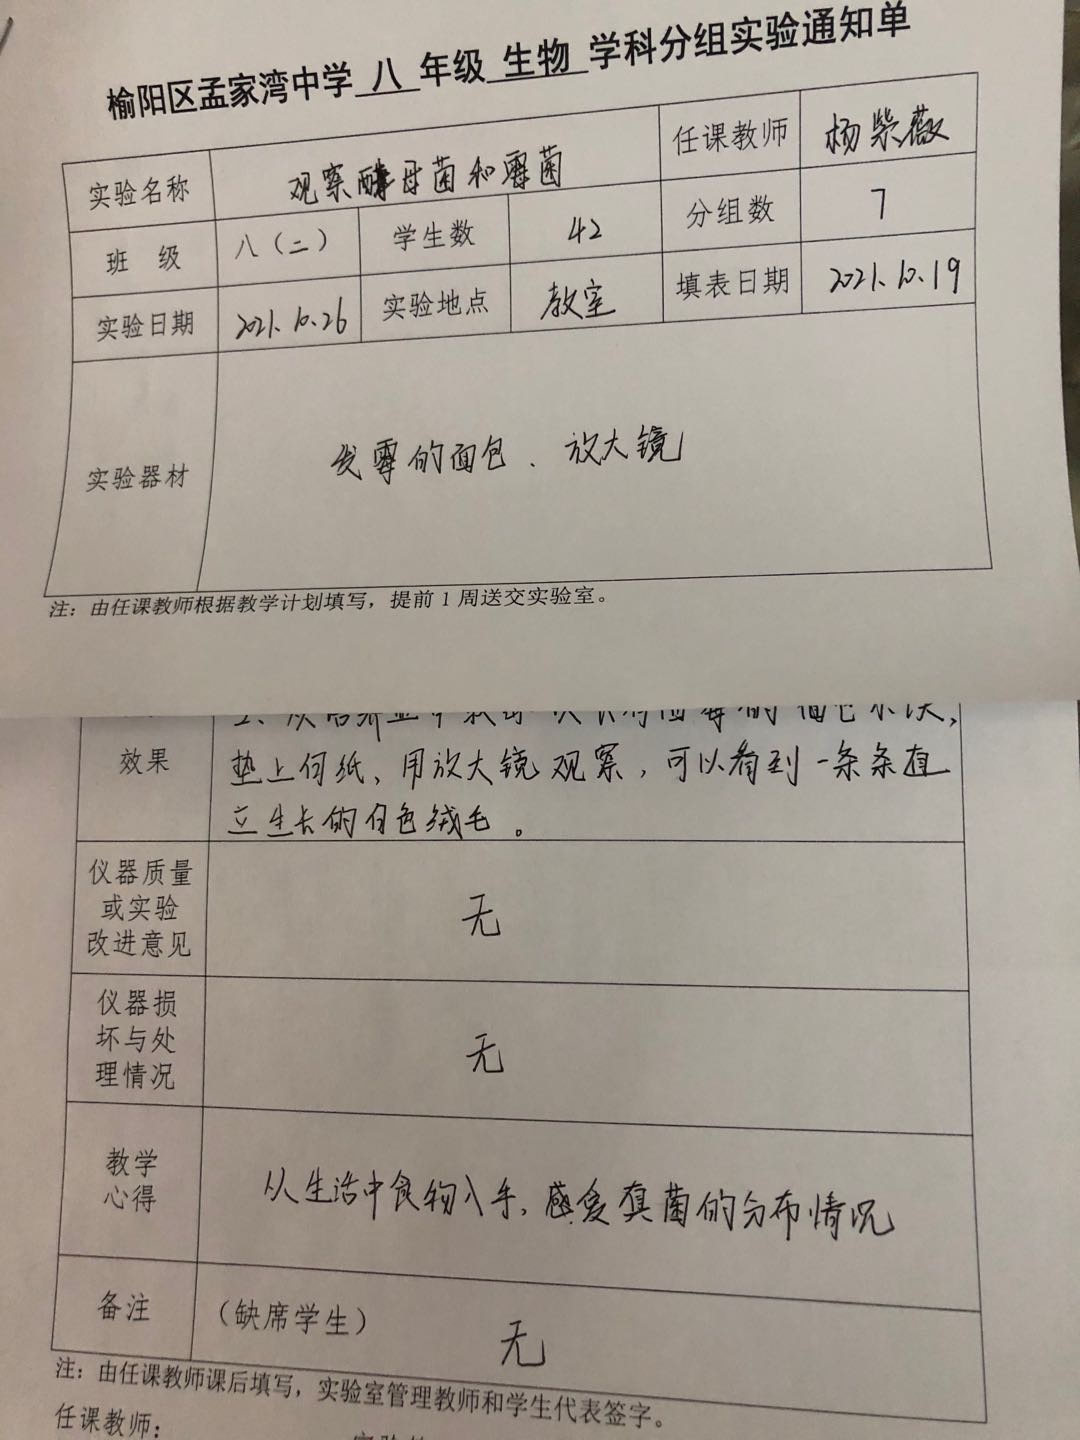 榆阳区孟家湾中学 八 年级 生物 学科分组实验通知单
实验名称 观察酵母菌和霉菌 任课教师 杨紫薇
班 级 八（二） 学生数 42 分组数 7
实验日期 2021.10.26 实验地点 教室 填表日期 2021.10.19
实验器材 发霉的面包、放大镜
注：由任课教师根据教学计划填写，提前1周送交实验室。
效果
垫上何纸、用放大镜观察，可以看到一条条直
立生长的白色绒毛。
仪器质量
或实验
改进意见
无
仪器损
坏与处
理情况
无
教学
心得
从生活中食物入手，感受真菌的分布情况
备注 （缺席学生） 无
注：由任课教师课后填写，实验室管理教师和学生代表签字。
任课教师：